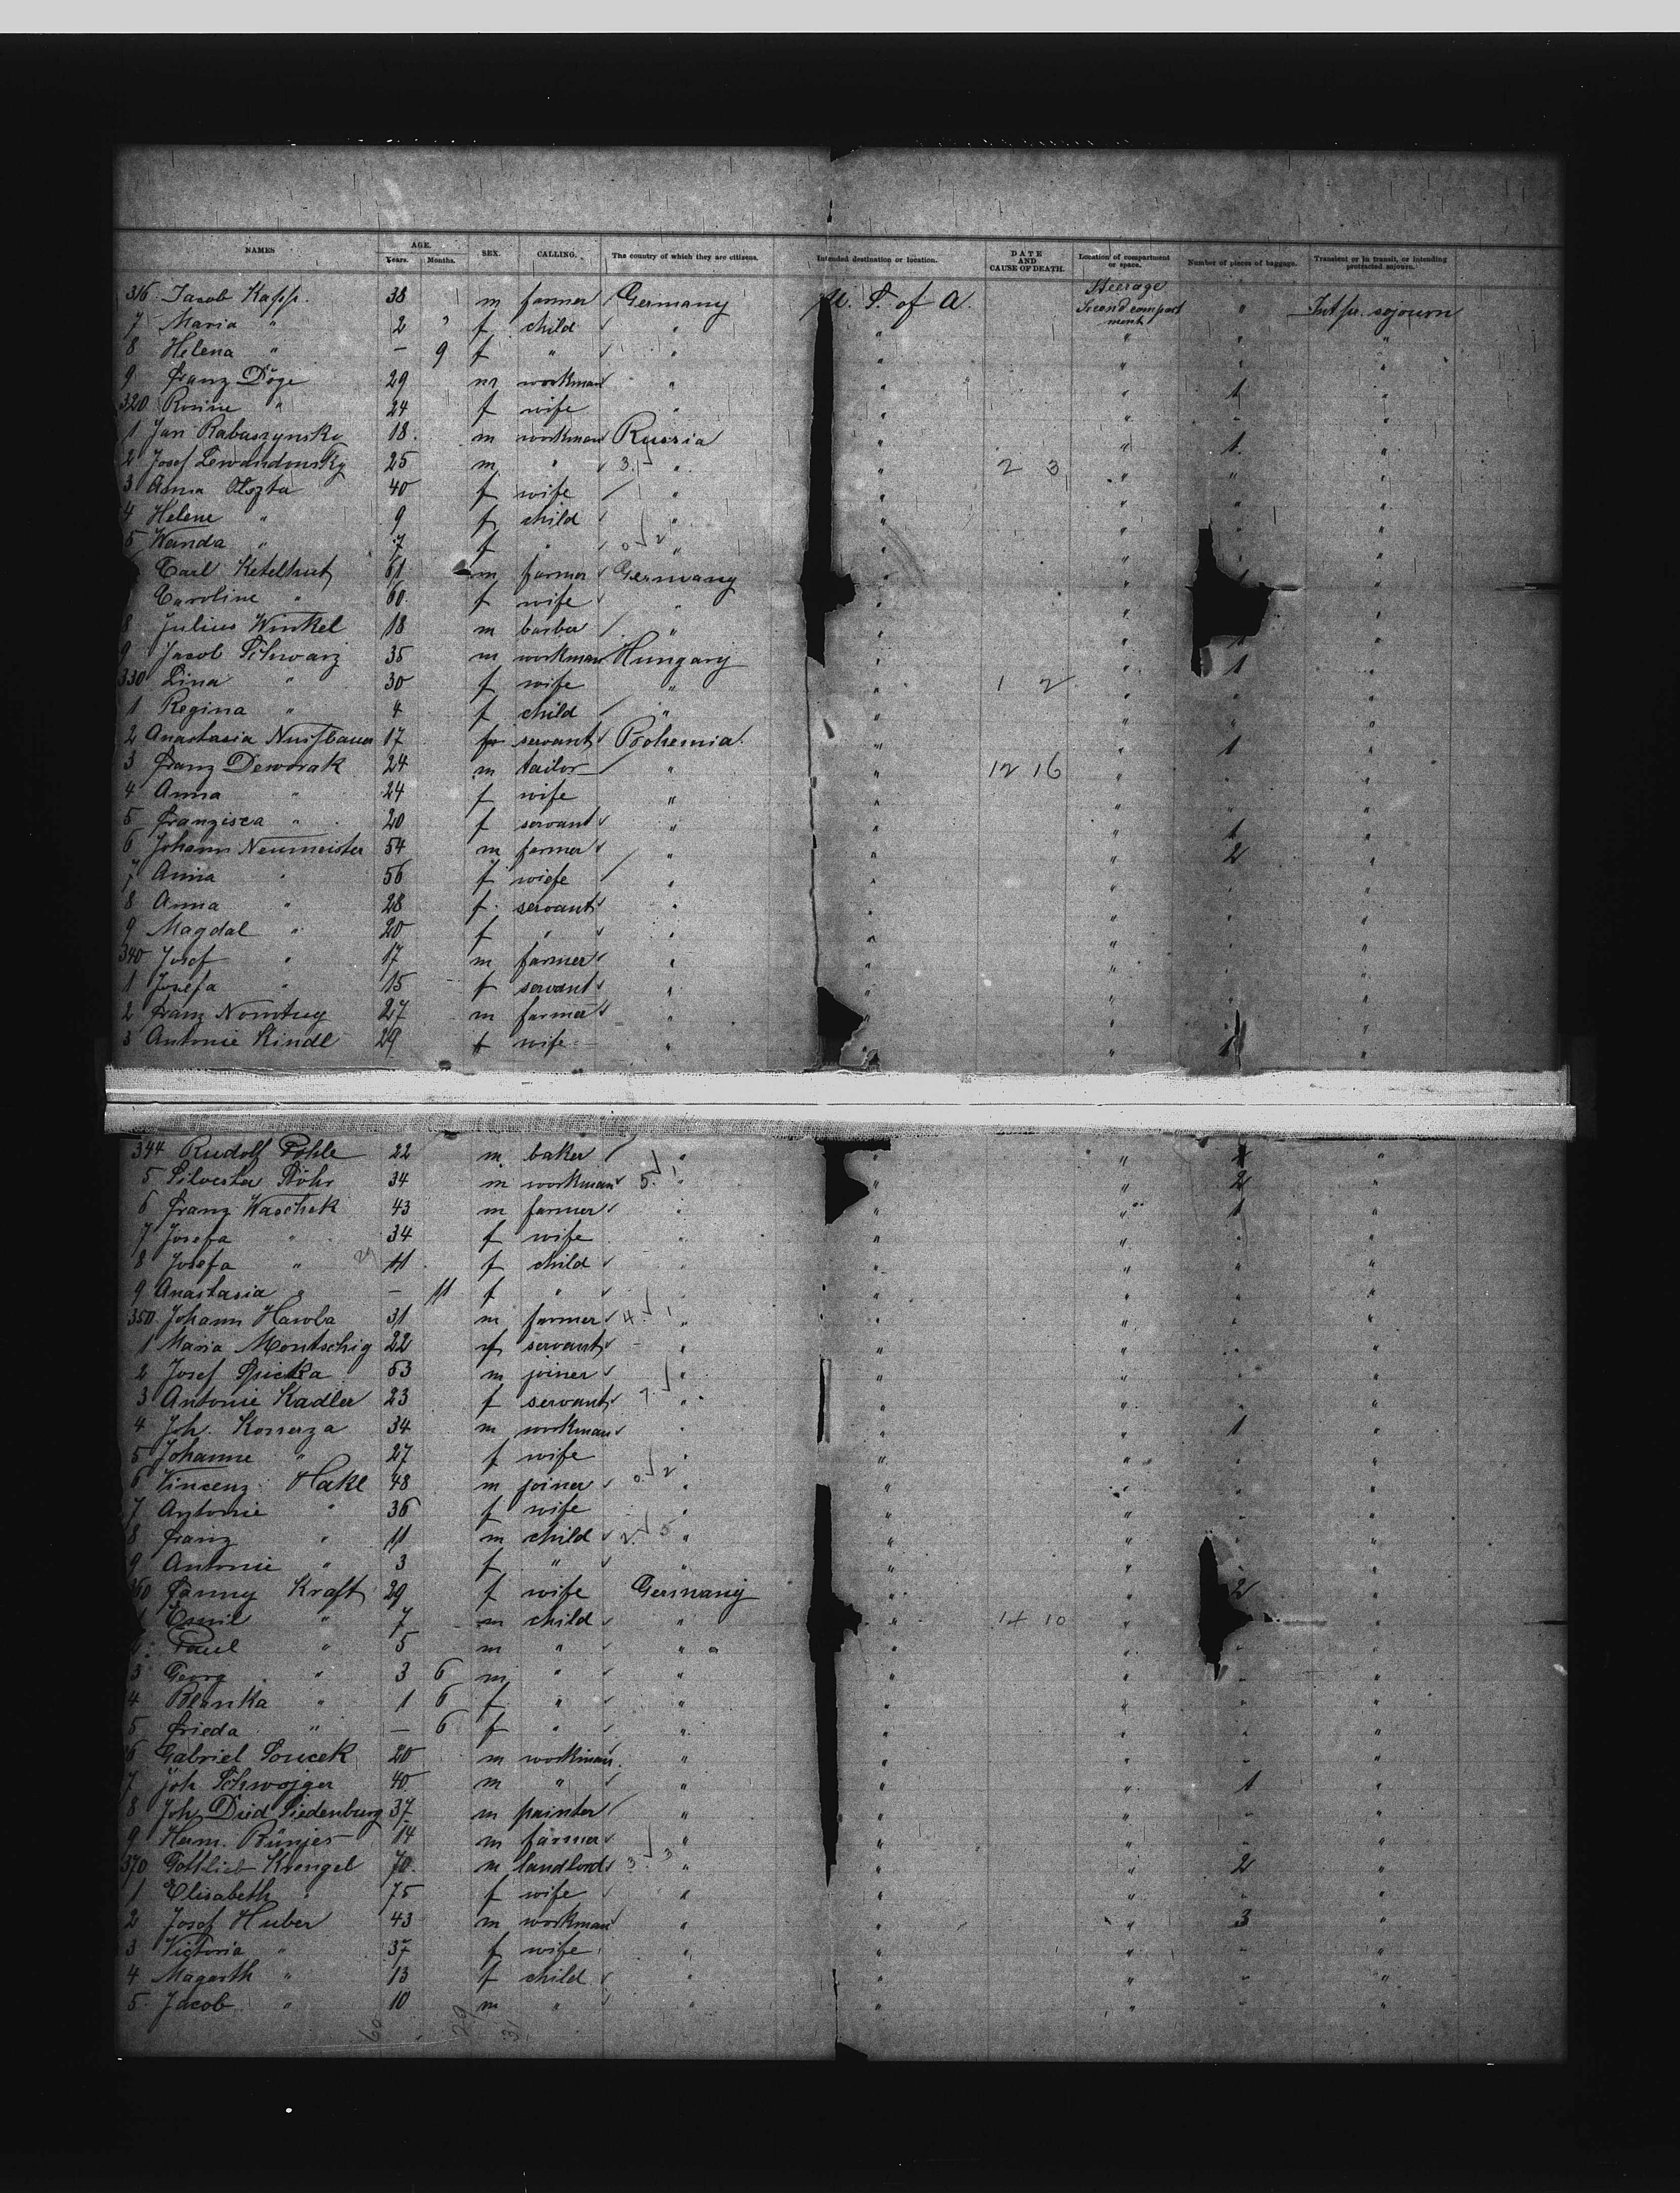 NAMES AGE. Years. Months. SEX. CALLING. The country of which they are citizens. Intended destination or location. DATE AND CAUSE OF DEATH. Location of compartment or space. Number of pieces of baggage. Transient or in transit, or intending protracted sojourn.
316 Jacob Kapp. 38 m farmer Germany U. S. of A. Steerage Second compartment " Int pr. sojourn
7 Maria " 2 " f child " " " " "
8 Helena " — 9 f " " " " " "
9 Franz Döge 29 m workman " " " 1 "
320 Rosine " 24 f wife " " " "
1 Jan Rabaszynski 18. m workman Russia " " 1. "
2 Josef Lewandowsky 25 m " 3. " " 2 3 " " "
3 Anna Olszta 40 f wife " " " " "
4 Helene " 9 f child " " " " "
5 Wanda " 7 f " 0 2 " " " "
Carl Ketelhut 61 m farmer Germany " " 1 "
Caroline " 60. f wife " " " "
8 Julius Winkel 18 m barber " " " 1 "
9 Jacob Schwarz 35 m workman Hungary " " 1 "
330 Lina " 30 f wife " " 1 2 " " "
1 Regina " 4 f child " " " " "
2 Anastasia Nussbauer 17 f servant Bohemia. " " 1 "
3 Franz Deworak 24 m tailor " " 12 16 " " "
4 Anna " 24 f wife " " " " "
5 Franzisca " 20 f servant " " " 1 "
6 Johann Neumeister 54 m farmer " " " 2 "
7 Anna " 56 f wiefe " " " " "
8 Anna " 28 f servant " " " " "
9 Magdal " 20 f " " " " " "
340 Josef " 17 m farmer " " " " "
1 Josefa " 15 f servant " " " " "
2 Franz 27 m farmer " " " "
3 Antonie Kindl 29 f wife " " " 1 "
344 Rudolf Pohle 22 m baker " " " 1 "
5 Silvester Stöhr 34 m workman 5. 1 " " " 2 "
6 Franz Waschek 43 m farmer " " " 1 "
7 Josefa " 34 f wife " " " " "
8 Josefa " 11 f child " " " " "
9 Anastasia " — 11 f " " " " "
350. Johann Haroba 31 m farmer 4. 1 " " " " "
1 Maria Montschig 22 f servant " " " " "
2 Josef Spicka 53 m joiner " " " " "
3 Antonie Kadler 23 f servant " " " " "
4 Joh. 34 m workman " " " 1 "
5 Johanne " 27 f wife " " " " "
6 Vincenz Hakl 48 m joiner 0 2 " " " " "
7 Antonie " 36 f wife " " " " "
8 Franz " 11 m child 2. 5 " " " " "
9 Antonie " 3 f " " " " " "
360 Fanny Kraft 29 f wife Germany " 2 "
1 Emil " 7 m child " " 14 10 " "
2 Paul " 5 m " " " " " "
3 Georg " 3 6 m " " " " " "
4 Blanka " 1 6 f " " " " " "
5 Frieda " — 6 f " " " " " "
6 Gabriel Soucek 20 m workman " " " " "
7 Joh Schwojger 40 m " " " " 1 "
8 Joh Died Siedenburg 37 m painter " " " " "
9 Herm. Rünjes 14 m farmer " " " " "
370 Gottlieb Krengel 70. m landlord 3 3 " " " 2 "
1 Elisabeth " 75 f wife " " " " "
2 Josef Huber 43 m workman " " " 3 "
3 Victoria " 37 f wife " " " " "
4 Magarth " 13 f child " " " " "
5. Jacob " 10 m " " " " " "
60 29 31